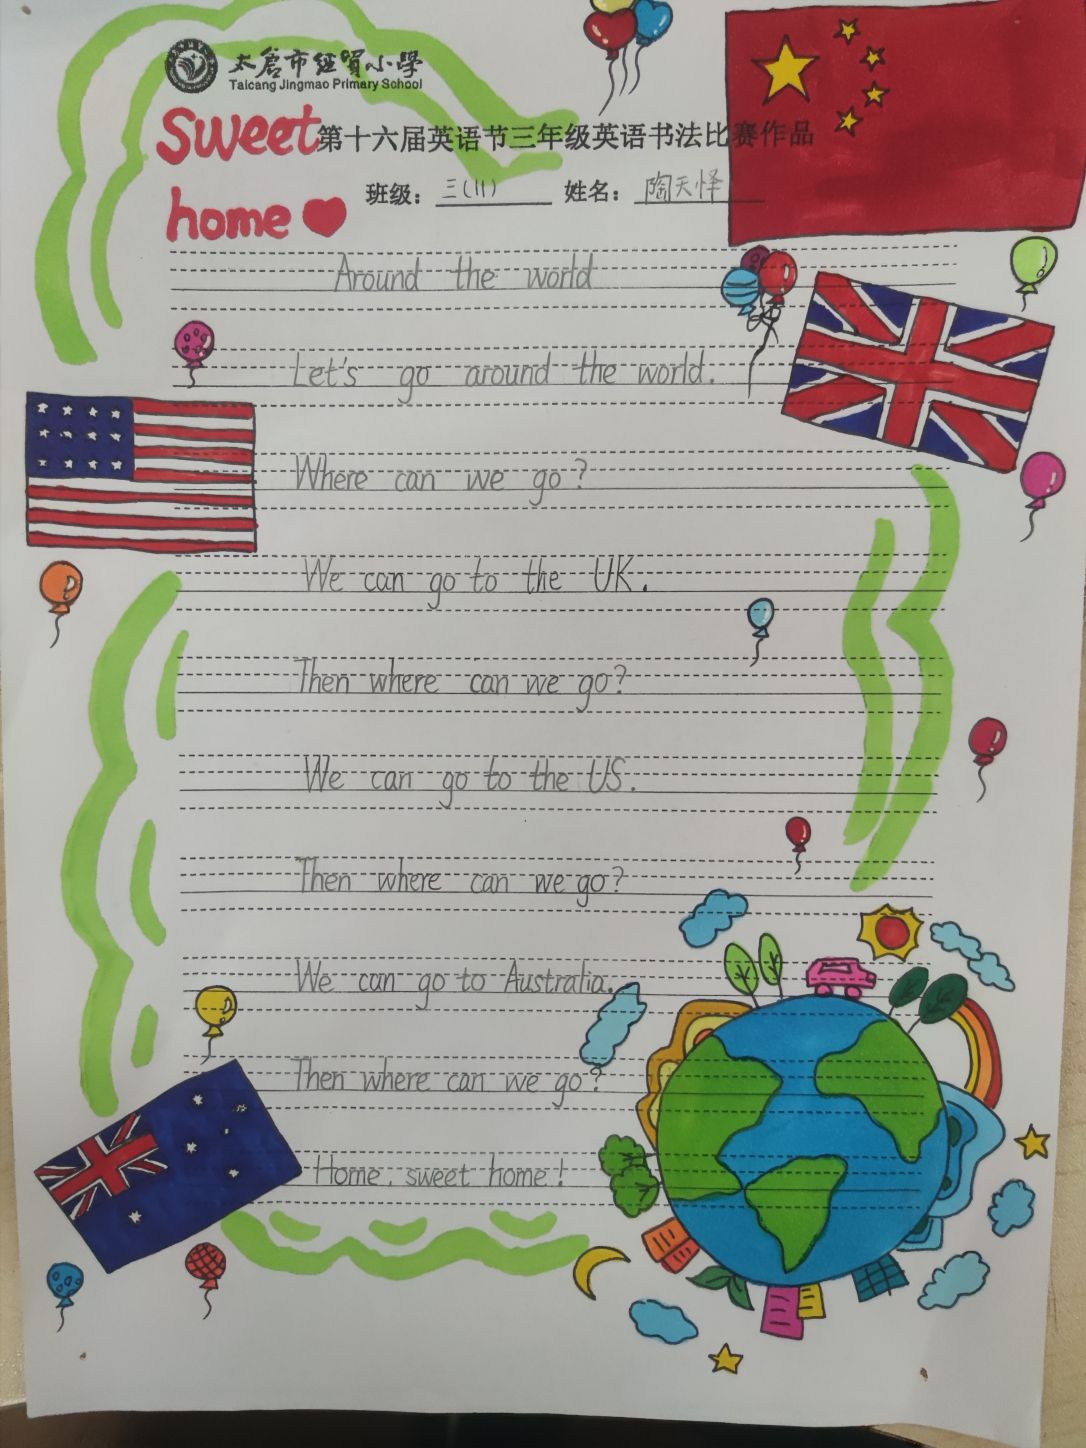 太倉市经贸小学
Taicang Jingmao Primary School
sweet
home
第十六届英语节三年级英语书法比赛作品
班级：三(11) 姓名：陶天怿
Around the world
Let's go around the world.
Where can we go?
We can go to the UK.
Then where can we go?
We can go to the US.
Then where can we go?
We can go to Australia.
Then where can we go?
Home, sweet home!